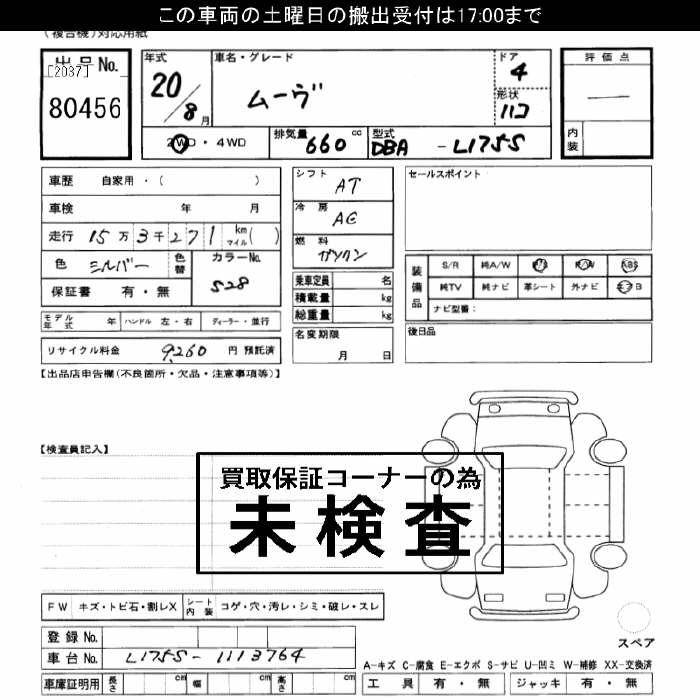 この車両の土曜日の搬出受付は17:00まで
(複合機)対応用紙
出品No.
[2037]
80456
年式
20/8月
車名・グレード
ムーヴ
ドア
4
形状
ハコ
評価点
—
内装
2WD・4WD
排気量 660 cc
型式 DBA - L175S
車歴 自家用・( )
車検 年 月
走行 15万3千271 km マイル( )
色 シルバー
色替
カラーNo.
S28
保証書 有・無
モデル年式 年 ハンドル 左・右 ディーラー・並行
リサイクル料金 9,260 円 預託済
シフト
AT
冷房
AC
燃料
ガソリン
乗車定員 名
積載量 kg
総重量 kg
名変期限
月 日
セールスポイント
装備品
S/R 純A/W P/S P/W ABS
純TV 純ナビ 革シート 外ナビ エアB
ナビ型番:
後日品
【出品店申告欄(不良箇所・欠品・注意事項等)】
【検査員記入】
買取保証コーナーの為
未検査
FW キズ・トビ石・割レX
シート内装 コゲ・穴・汚レ・シミ・破レ・スレ
登録No.
車台No. L175S-1113764
車庫証明用 長さ cm 幅 cm 高さ cm
スペア
A-キズ C-腐食 E-エクボ S-サビ U-凹ミ W-補修 XX-交換済
工具 有・無 ジャッキ 有・無